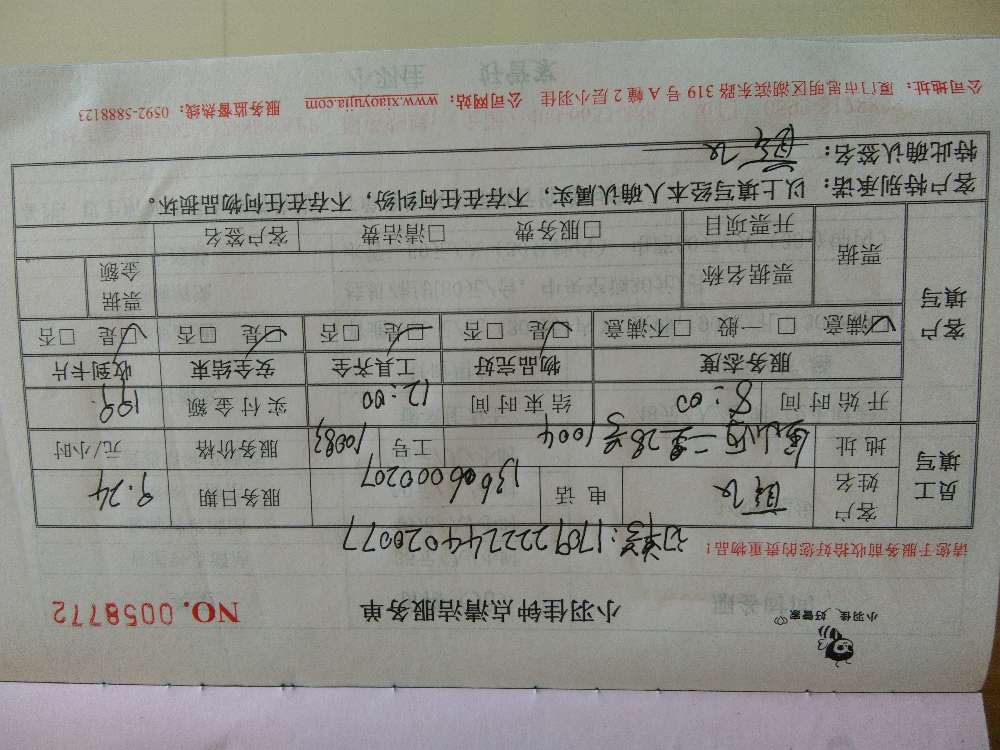 小羽佳 好管家
小羽佳钟点清洁服务单
NO. 0058772
请您于服务前收拾好您的贵重物品！
订单号：1709222244020077
员工填写
客户姓名 电话 13606000207 服务日期 9.24
地址 金山 二里28号1004 工号 10083 服务价格 元/小时
开始时间 8:00 结束时间 12:00 实付金额 199.
客户填写
服务态度 物品完好 工具齐全 安全结束 收到卡片
☑满意 □一般 □不满意 ☑是 □否 ☑是 □否 ☑是 □否 ☑是 □否
票据 票据名称 票据金额
开票项目 □服务费 □清洁费 客户签名
客户特别承诺：以上填写经本人确认属实，不存在任何纠纷，不存在任何物品损坏。
特此确认签名：
公司地址：厦门市思明区湖滨东路 319 号 A 幢 2 层小羽佳 公司网站：www.xiaoyujia.com 服务监督热线：0592-5888123